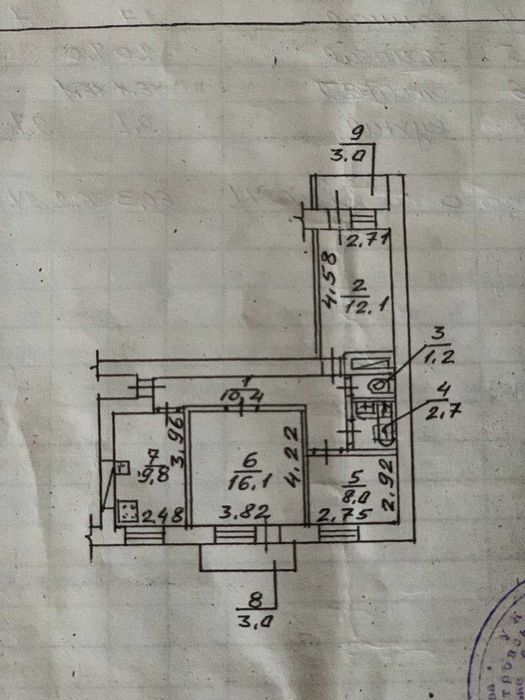 9
3.0
2.71
4.58
2
12.1
3
1.2
1
10.4
4
2.7
3.96
7
9.8
6
16.1
4.22
5
8.0
2.92
2.48
3.82
2.75
8
3.0